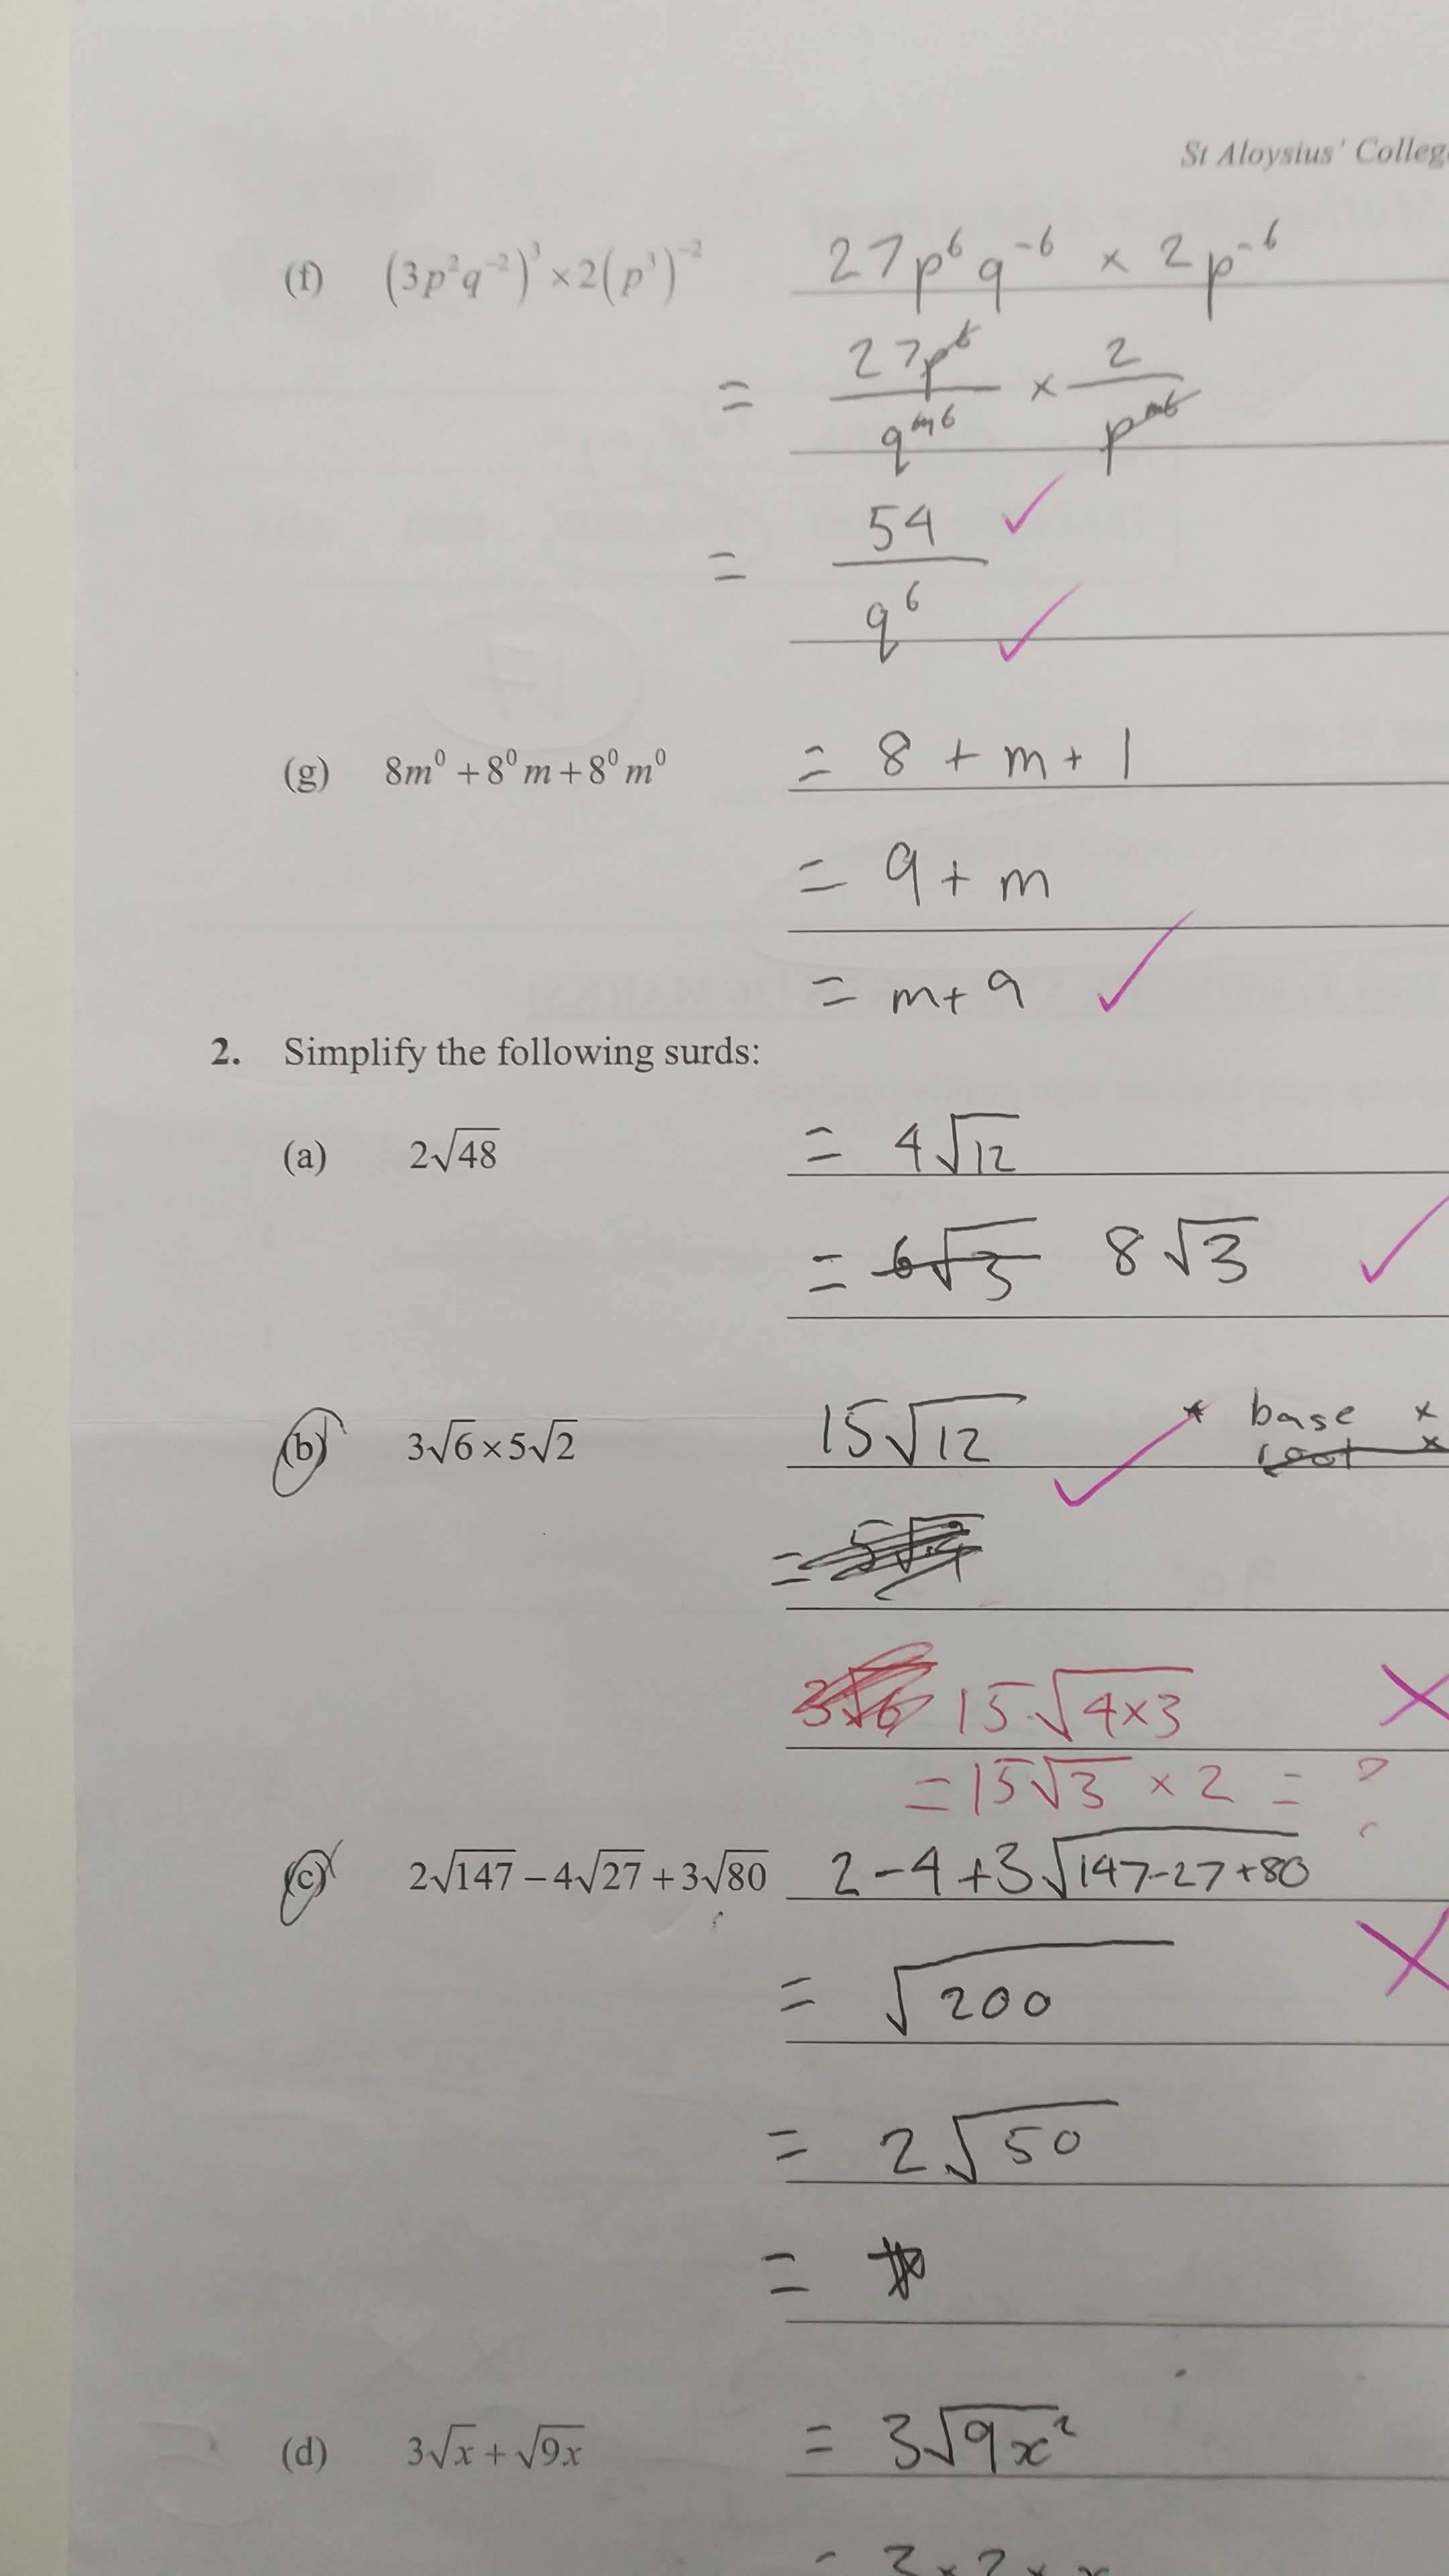 St Aloysius' Colleg
(f) (3p²q⁻²)³ × 2(p³)⁻² 27p⁶q⁻⁶ × 2p⁻⁶
= 27p⁶/q⁶ × 2/p⁶
= 54/q⁶ ✓ ✓
(g) 8m⁰ + 8⁰m + 8⁰m⁰ = 8 + m + 1
= 9 + m
= m + 9 ✓
2. Simplify the following surds:
(a) 2√48 = 4√12
= 6√3 8√3 ✓
(b) 3√6 × 5√2 15√12 ✓ * base ×
root ×
=
3√6 15√(4×3) ×
= 15√3 × 2 = ?
(c) 2√147 − 4√27 + 3√80 2 − 4 + 3√(147−27+80)
= √200 ×
= 2√50
=
(d) 3√x + √9x = 3√9x²